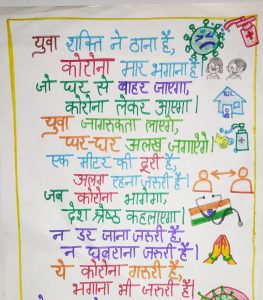 युवा शक्ति ने ठाना है,
कोरोना मार भगाना है।
जो घर से बाहर जाएगा,
कोरोना लेकर आएगा।
युवा जागरुकता लाएंगे,
घर-घर अलख जगाएंगे।
एक मीटर की दूरी है,
अलग रहना जरूरी है।
जब कोरोना भागेगा,
देश श्रेष्ठ कहलाएगा।
न डर जाना जरुरी है,
न घबराना जरुरी है।
ये कोरोना गरूरी है,
भगाना भी जरूरी है।